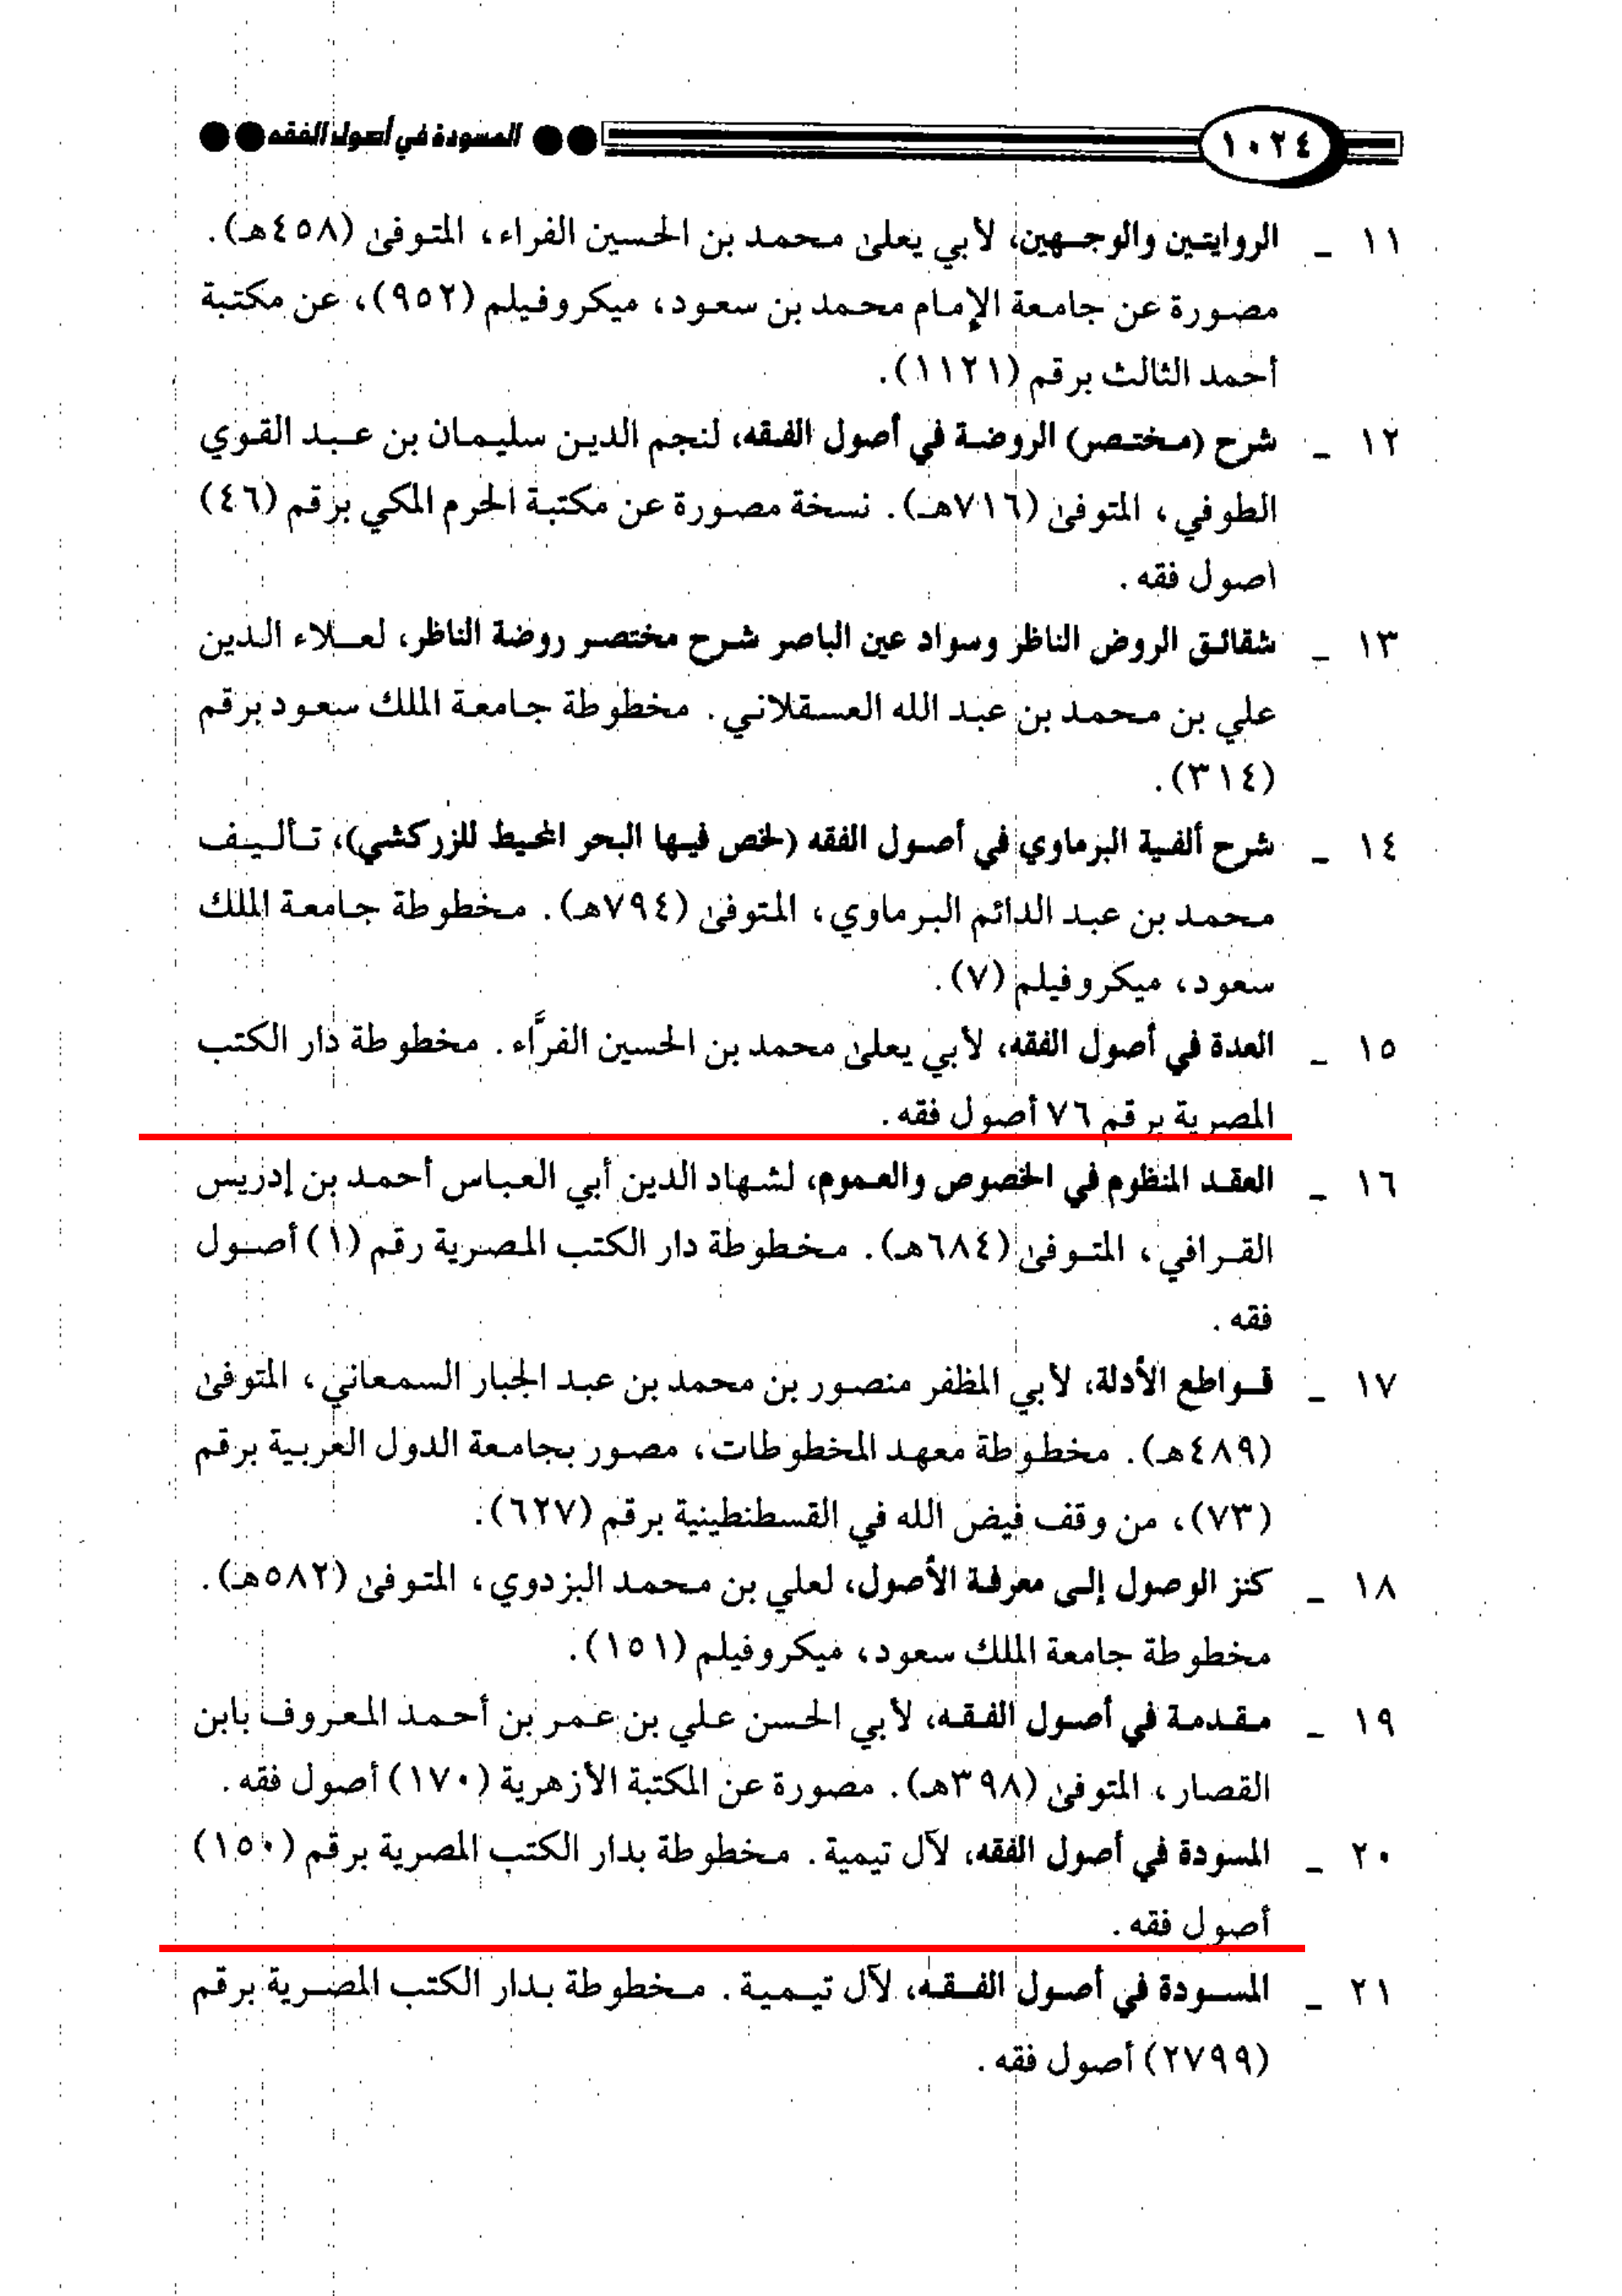 ١٠٢٤ المسودة في أصول الفقه
١١ _ الروايتين والوجهين، لأبي يعلى محمد بن الحسين الفراء، المتوفى (٤٥٨هـ).
مصورة عن جامعة الإمام محمد بن سعود، ميكروفيلم (٩٥٢)، عن مكتبة
أحمد الثالث برقم (١١٢١).
١٢ _ شرح (مختصر) الروضة في أصول الفقه، لنجم الدين سليمان بن عبد القوي
الطوفي، المتوفى (٧١٦هـ). نسخة مصورة عن مكتبة الحرم المكي برقم (٤٦)
اصول فقه.
١٣ _ شقائق الروض الناظر وسواد عين الباصر شرح مختصر روضة الناظر، لعلاء الدين
علي بن محمد بن عبد الله العسقلاني. مخطوطة جامعة الملك سعود برقم
(٣١٤).
١٤ _ شرح ألفية البرماوي في أصول الفقه (لخص فيها البحر المحيط للزركشي)، تأليف
محمد بن عبد الدائم البرماوي، المتوفى (٧٩٤هـ). مخطوطة جامعة الملك
سعود، ميكروفيلم (٧).
١٥ _ العدة في أصول الفقه، لأبي يعلى محمد بن الحسين الفرَّاء. مخطوطة دار الكتب
المصرية برقم ٧٦ أصول فقه.
١٦ _ العقد المنظوم في الخصوص والعموم، لشهاد الدين أبي العباس أحمد بن إدريس
القرافي، المتوفى (٦٨٤هـ). مخطوطة دار الكتب المصرية رقم (١) أصول
فقه.
١٧ _ قواطع الأدلة، لأبي المظفر منصور بن محمد بن عبد الجبار السمعاني، المتوفى
(٤٨٩هـ). مخطوطة معهد المخطوطات، مصور بجامعة الدول العربية برقم
(٧٣)، من وقف فيض الله في القسطنطينية برقم (٦٢٧).
١٨ _ كنز الوصول إلى معرفة الأصول، لعلي بن محمد البزدوي، المتوفى (٥٨٢هـ).
مخطوطة جامعة الملك سعود، ميكروفيلم (١٥١).
١٩ _ مقدمة في أصول الفقه، لأبي الحسن علي بن عمر بن أحمد المعروف بابن
القصار، المتوفى (٣٩٨هـ). مصورة عن المكتبة الأزهرية (١٧٠) أصول فقه.
٢٠ _ المسودة في أصول الفقه، لآل تيمية. مخطوطة بدار الكتب المصرية برقم (١٥٠)
أصول فقه.
٢١ _ المسودة في أصول الفقه، لآل تيمية. مخطوطة بدار الكتب المصرية برقم
(٢٧٩٩) أصول فقه.